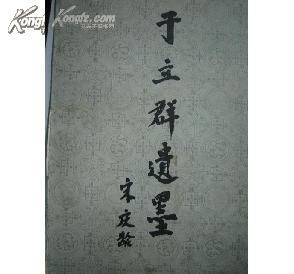 于立群遺墨
宋庆龄
Kongfz.com